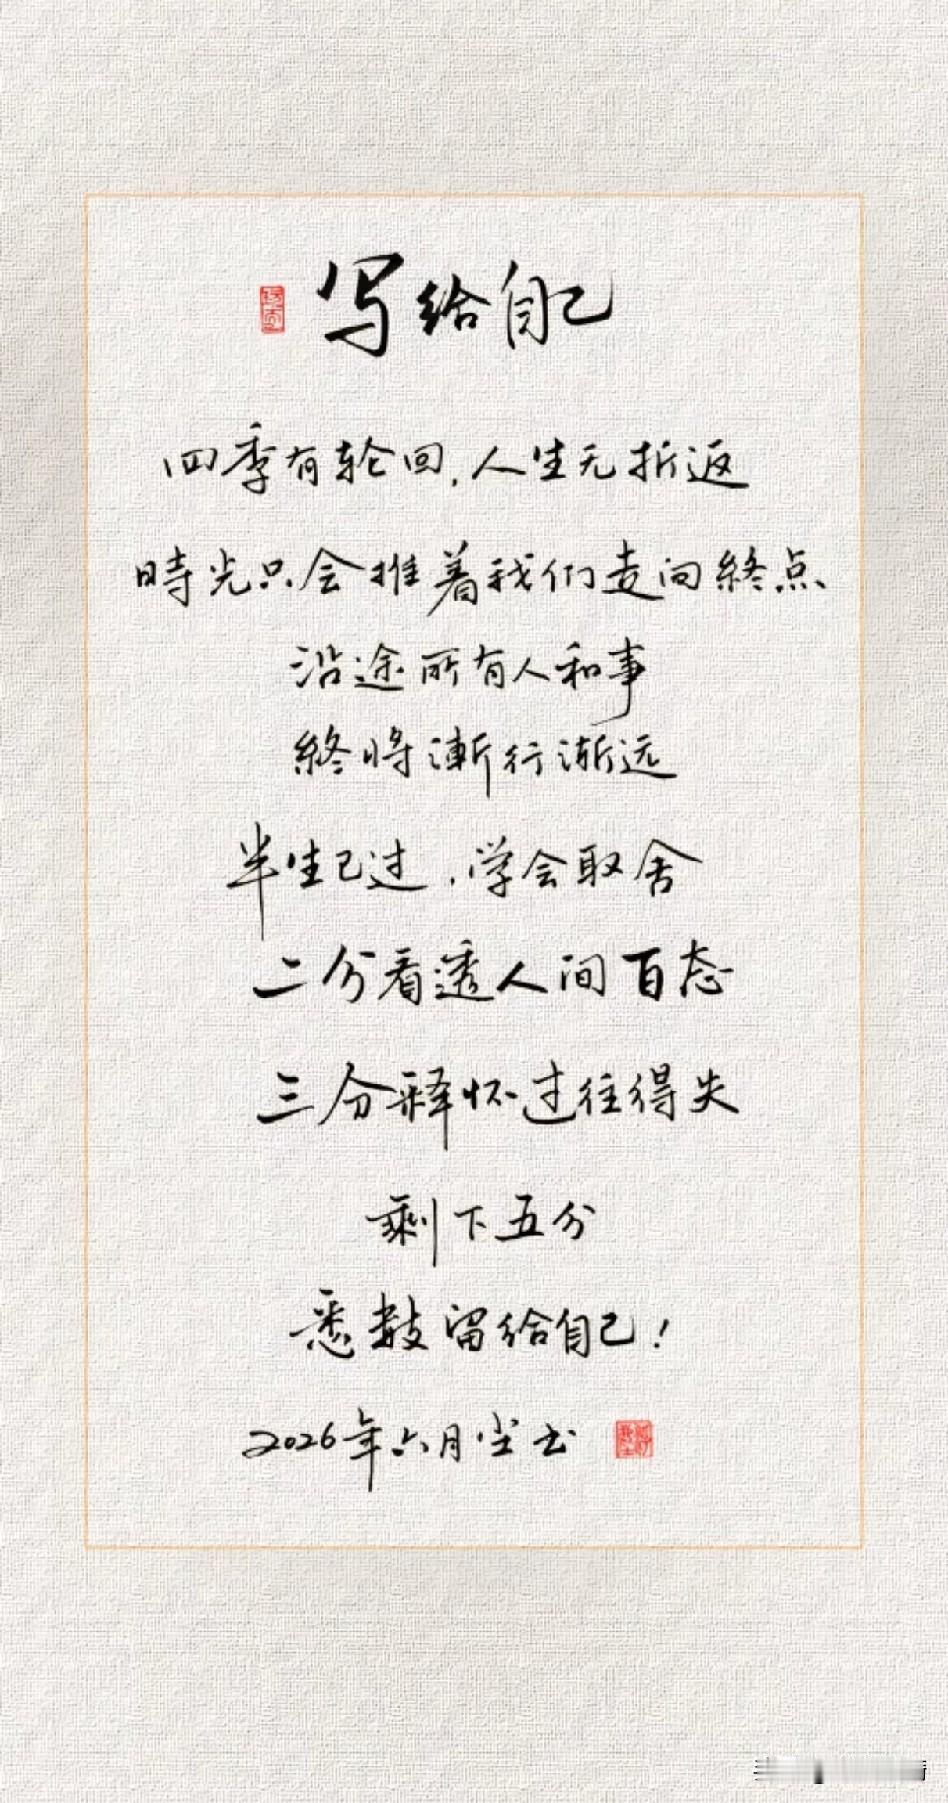 写给自己
四季有轮回,人生无折返
時光只会推着我们走向終点
沿途所有人和事
終将漸行渐远
半生已过,学会取舍
二分看透人间百态
三分释怀过往得失
剩下五分
悉数留给自己!
2026年六月尘书